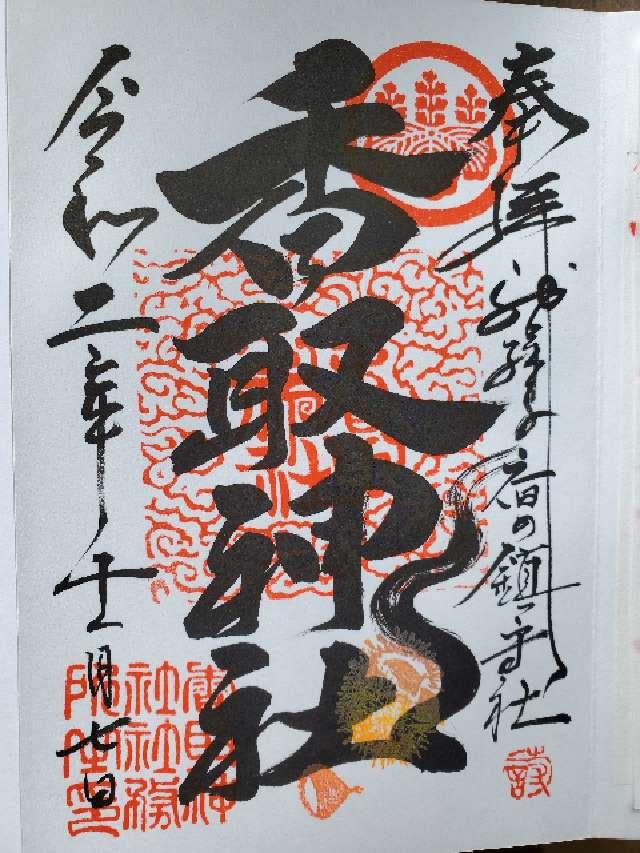 奉拝 我孫子宿の鎮守社
香取神社
令和二年十一月七日
香取神
社社務
所之印